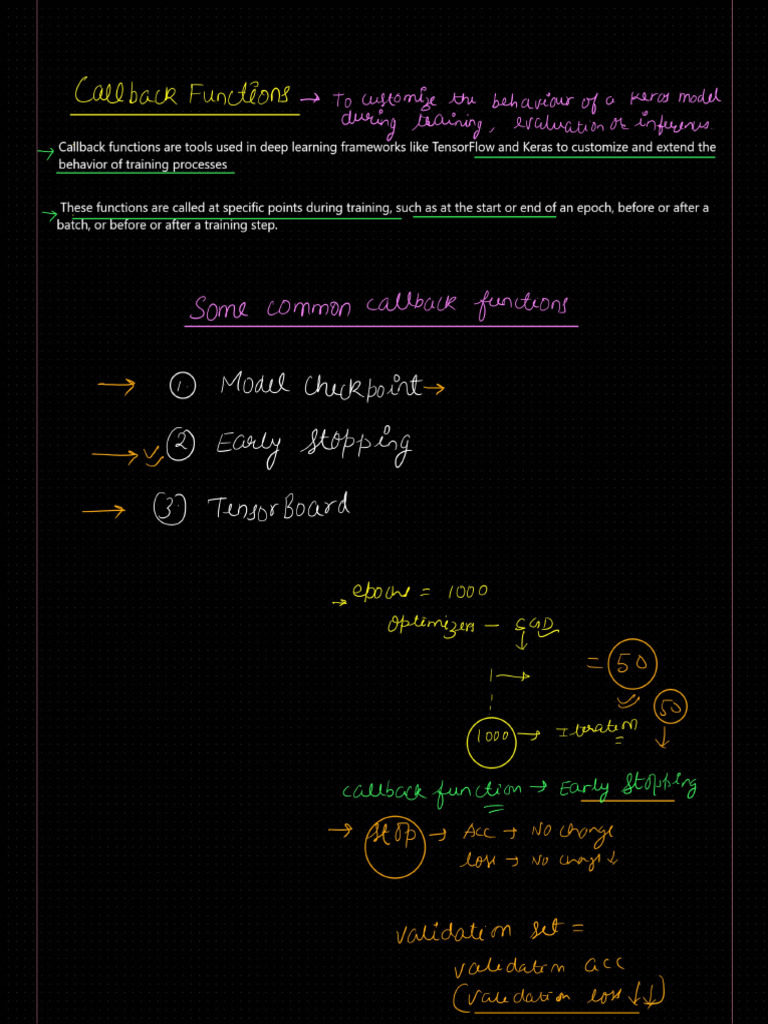 Callback Functions → To customize the behaviour of a Keras model
during training, evaluation or inference
→ Callback functions are tools used in deep learning frameworks like TensorFlow and Keras to customize and extend the
behavior of training processes
→ These functions are called at specific points during training, such as at the start or end of an epoch, before or after a
batch, or before or after a training step.
Some common callback functions
→ ① Model Checkpoint →
→ ② Early Stopping
→ ③ TensorBoard
→ epochs = 1000
Optimizers - SGD
↓
1 → = 50
50
1000 → Iteration ↓
callback function → Early Stopping
→ Stop → Acc → No change
loss → No change ↓
validation set =
validation acc
(validation loss ↓↓)